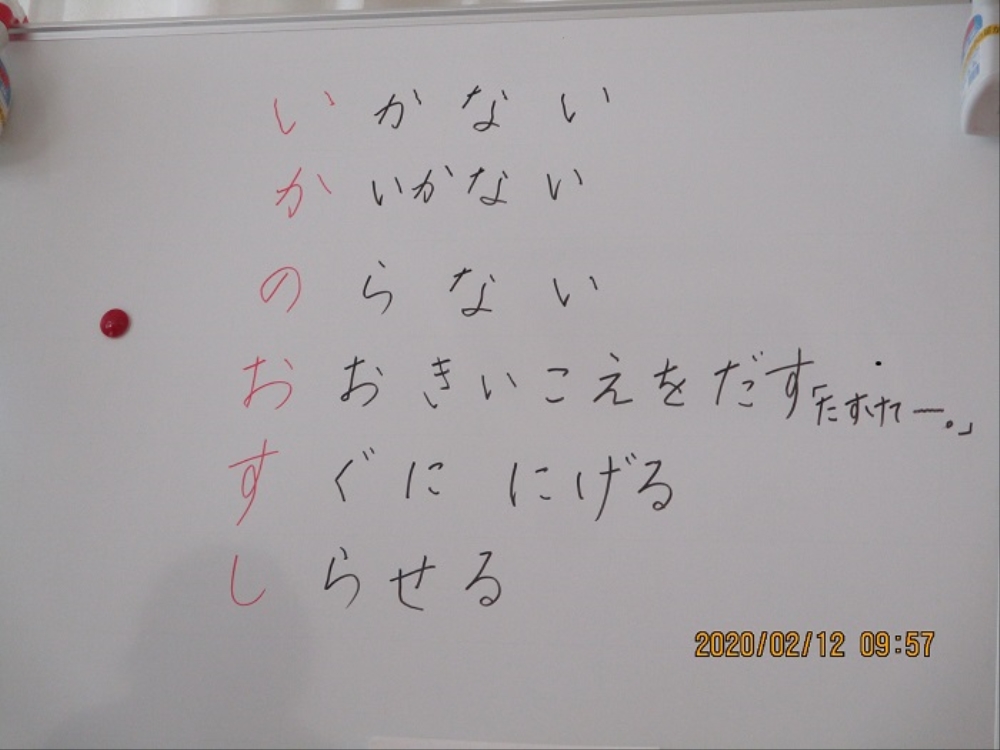 いかない
かいかない
のらない
おおきいこえをだす「たすけてー。」
すぐににげる
しらせる
2020/02/12 09:57